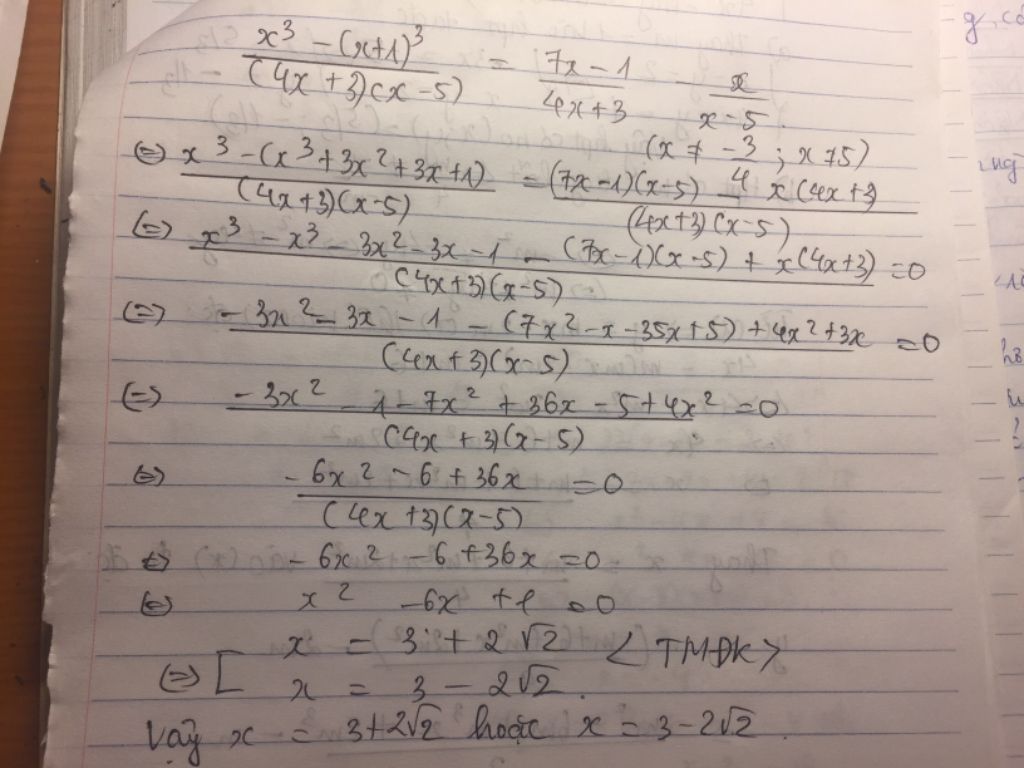 \frac{x^3 - (x+1)^3}{(4x+3)(x-5)} = \frac{7x-1}{4x+3} - \frac{x}{x-5}.
(x ≠ -\frac{3}{4}; x ≠ 5)
⇔ \frac{x^3 - (x^3 + 3x^2 + 3x + 1)}{(4x+3)(x-5)} = \frac{(7x-1)(x-5) - x(4x+3)}{(4x+3)(x-5)}
⇔ \frac{x^3 - x^3 - 3x^2 - 3x - 1 - (7x-1)(x-5) + x(4x+3)}{(4x+3)(x-5)} = 0
⇔ \frac{-3x^2 - 3x - 1 - (7x^2 - x - 35x + 5) + 4x^2 + 3x}{(4x+3)(x-5)} = 0
⇔ \frac{-3x^2 - 1 - 7x^2 + 36x - 5 + 4x^2}{(4x+3)(x-5)} = 0
⇔ \frac{-6x^2 - 6 + 36x}{(4x+3)(x-5)} = 0
⇔ -6x^2 - 6 + 36x = 0
⇔ x^2 - 6x + 1 = 0
⇔ [ x = 3 + 2√2 <TMĐK>
x = 3 - 2√2.
Vậy x = 3+2√2 hoặc x = 3-2√2.